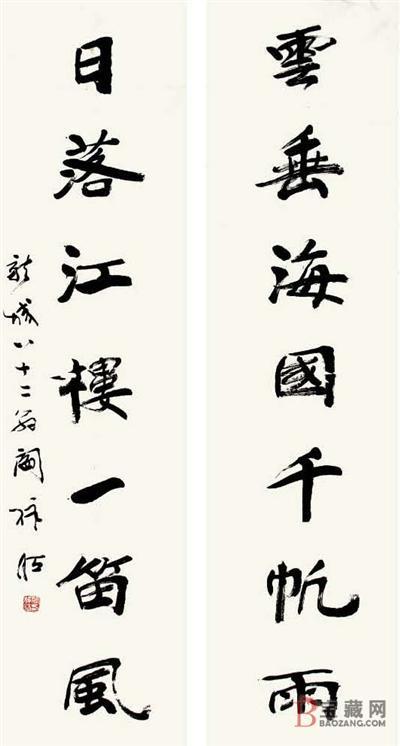 雲垂海國千帆雨
日落江樓一笛風
城八十二翁
宝藏网
BAOZANG.COM